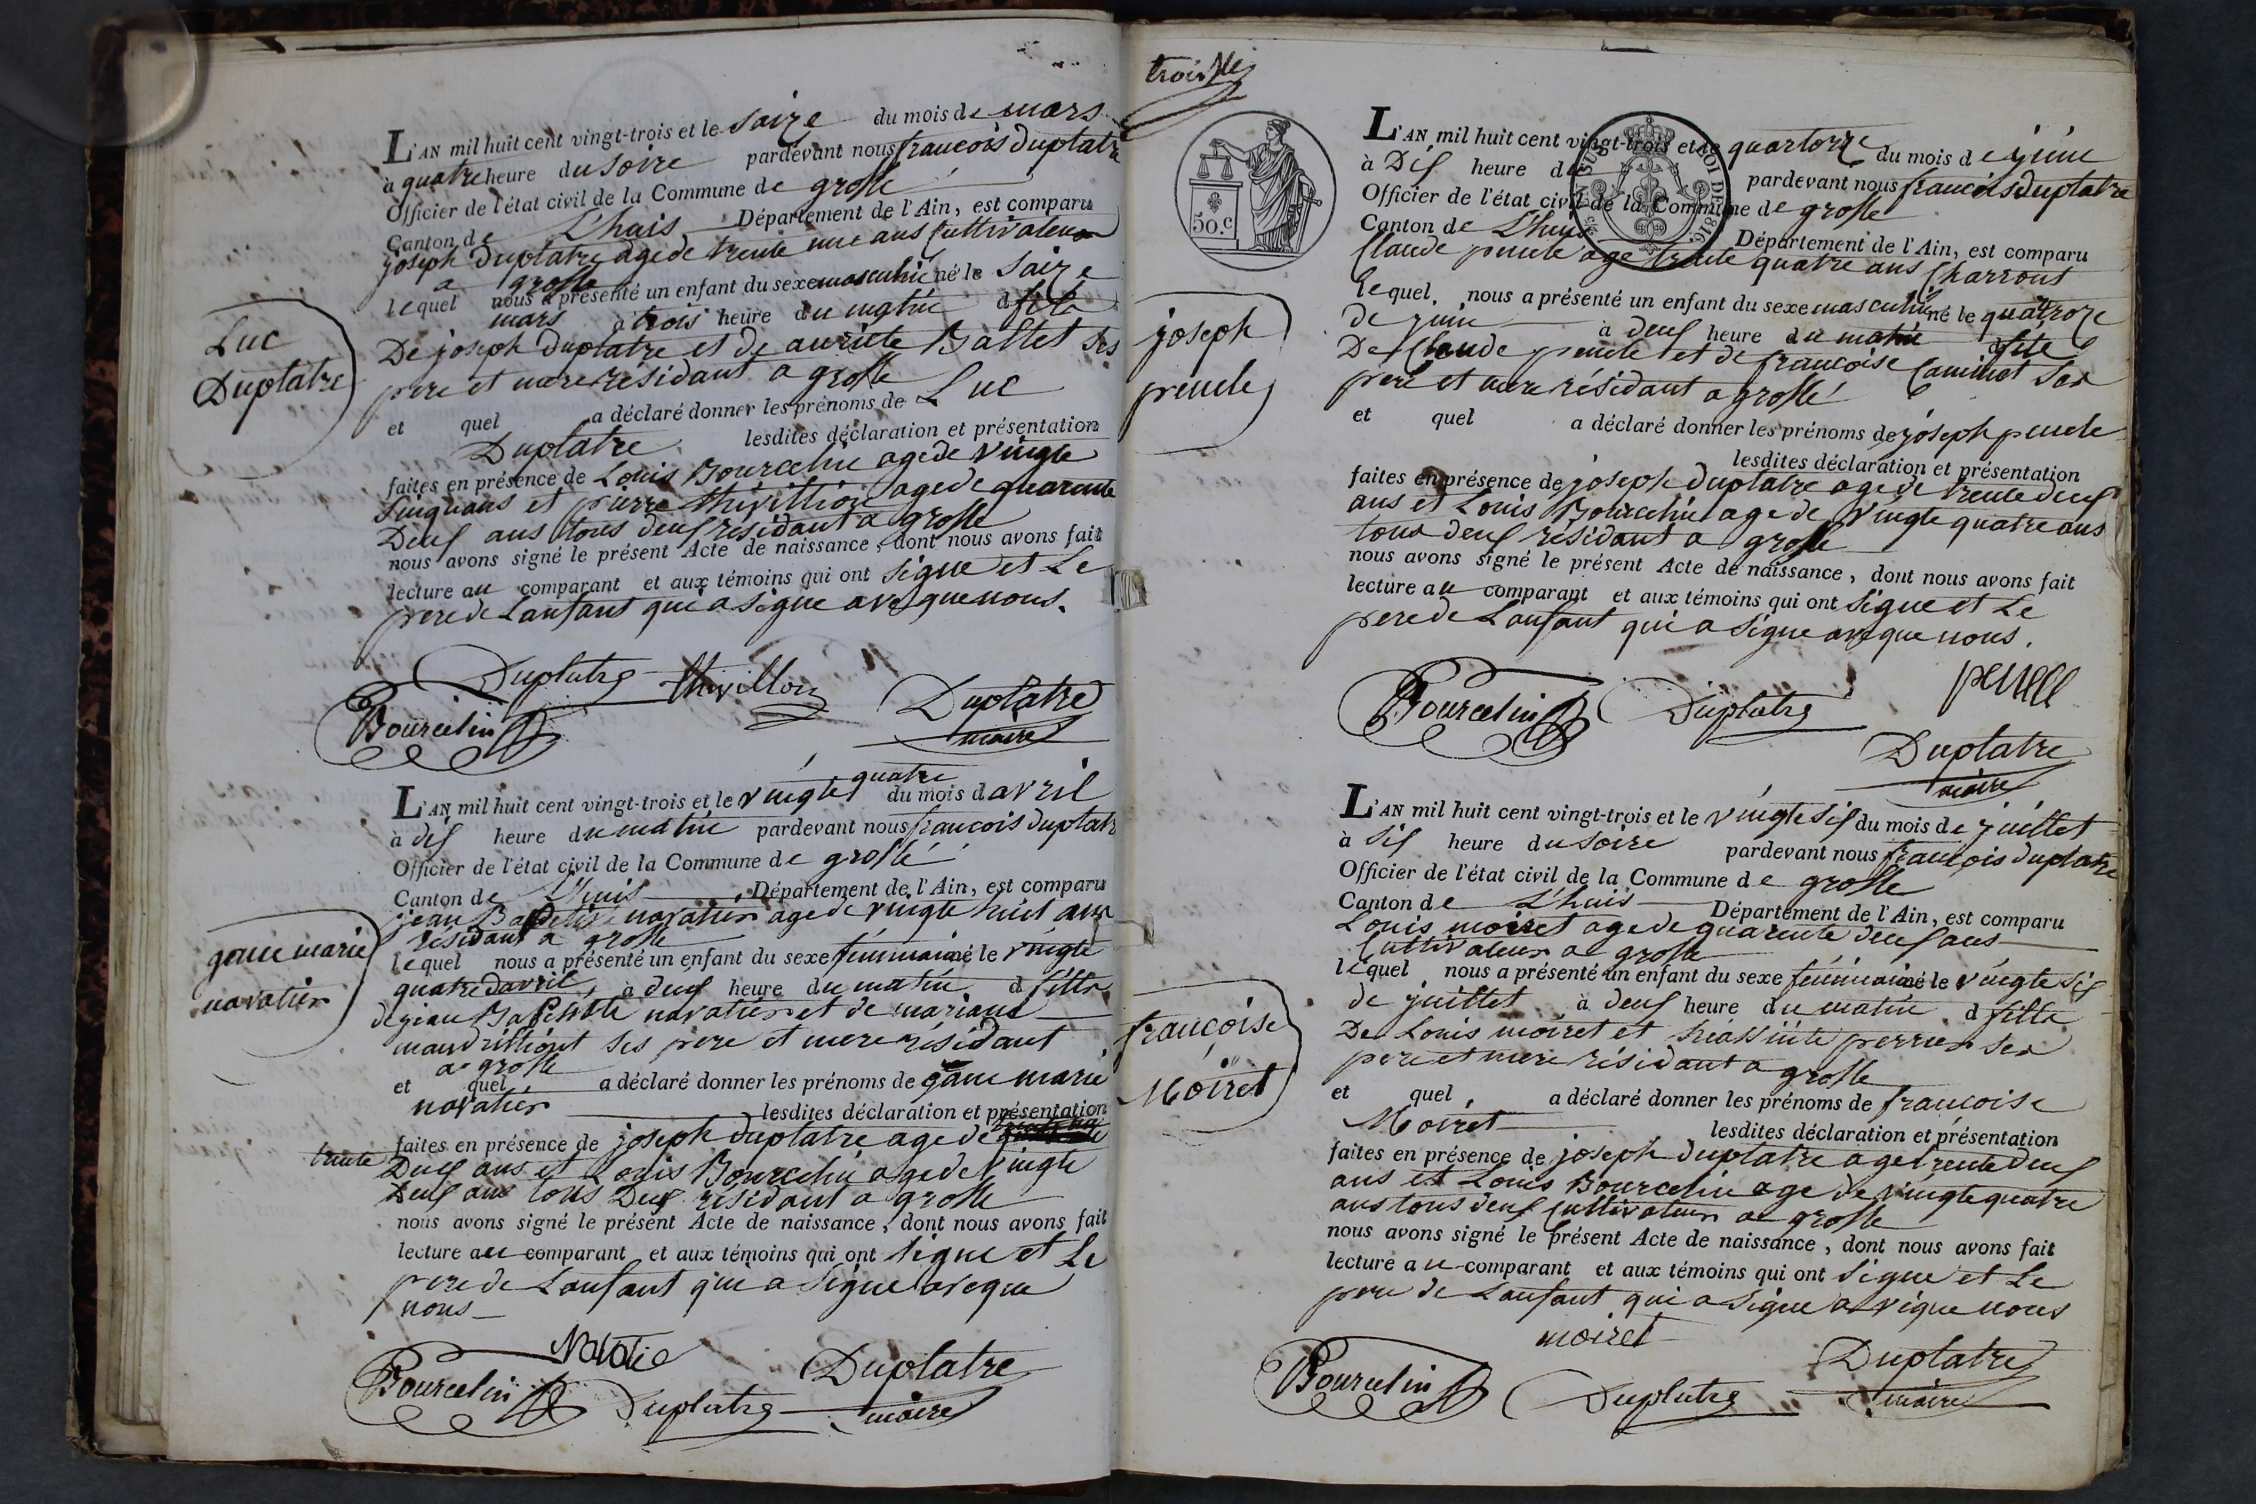 Luc
Duplatre
L'AN mil huit cent vingt-trois et le saize du mois de mars
à quatre heure du soire pardevant nous francois duplatre
Officier de l'état civil de la Commune de grosle
Canton de L'huis Département de l'Ain, est comparu
joseph duplatre age de trente une ans Cultivateur
a grosle
lequel nous a présenté un enfant du sexe masculin né le saize
mars à trois heure du matin d fils
De joseph duplatre et de auriete Ballet ses
pere et mere résidant a grosle
et quel a déclaré donner les prénoms de Luc
Duplatre lesdites déclaration et présentation
faites en présence de Louis Bourcelin age de vingte
sinq ans et pierre thivillion age de quarente
Deus ans tous deus résidant a grosle
nous avons signé le présent Acte de naissance, dont nous avons fait
lecture au comparant et aux témoins qui ont signe et Le
pere de Lanfant qui a signe aveque nous.
Duplatre thivillon
Bourcelin Duplatre
maire
gane marie
navatier
L'AN mil huit cent vingt-trois et le vingte quatre du mois d avril
à dis heure du matin pardevant nous francois duplatre
Officier de l'état civil de la Commune de groslé
Canton de L'huis Département de l'Ain, est comparu
jean Baptiste navatier age de vingte huit ans
résidant a grosle
lequel nous a présenté un enfant du sexe féminaine né le vingte
quatre davril, à deus heure du matin d fille
de jean Baptiste navatier et de mariane
ses pere et mere résidant
a grosle
et quel a déclaré donner les prénoms de gane marie
navatier lesdites déclaration et présentation
faites en présence de joseph duplatre age de
trente Deus ans et Louis Bourcelin age de vingte
Deus ans tous Deus résidant a grosle
nous avons signé le présent Acte de naissance, dont nous avons fait
lecture au comparant et aux témoins qui ont signe et Le
pere de Lanfant qui a signe aveque
nous
Bourcelin Duplatre Duplatre
maire
trois
50.c
LOI DE 1816.
joseph
pencle
L'AN mil huit cent vingt-trois et le quartorze du mois de juin
à Dis heure du pardevant nous francois duplatre
Officier de l'état civil de la Commune de grosle
Canton de L'huis Département de l'Ain, est comparu
Claude pencle age trente quatre ans Charront
lequel nous a présenté un enfant du sexe masculin né le quatroze
de juin à deus heure du matin d fils
De Claude pencle et de francoise Caminet ses
pere et mere résidant a groslé
et quel a déclaré donner les prénoms de joseph pencle
lesdites déclaration et présentation
faites en présence de joseph duplatre age de trente deus
ans et Louis Bourcelin age de vingte quatre ans
tous deus résidant a grosle
nous avons signé le présent Acte de naissance, dont nous avons fait
lecture au comparant et aux témoins qui ont signe et Le
pere de Lanfant qui a signe aveque nous.
Bourcelin Duplatre
Duplatre
maire
francoise
Moiret
L'AN mil huit cent vingt-trois et le vingte sis du mois de juillet
à sis heure du soire pardevant nous francois duplatre
Officier de l'état civil de la Commune de grosle
Canton de L'huis Département de l'Ain, est comparu
Louis moiret age de quarente deus ans
Cultivateur a grosle
lequel nous a présenté un enfant du sexe féminaine né le vingte sis
de juillet à deus heure du matin d fille
De Louis moiret et perrier ses
pere et mere résidant a grosle
et quel a déclaré donner les prénoms de francoise
Moiret lesdites déclaration et présentation
faites en présence de joseph duplatre age trente deus
ans et Louis Bourcelin age de vingte quatre
ans tous deus Cultivateur a grosle
nous avons signé le présent Acte de naissance, dont nous avons fait
lecture au comparant et aux témoins qui ont signe et Le
pere de Lanfant qui a signe aveque nous
moiret
Bourcelin Duplatre Duplatre
maire